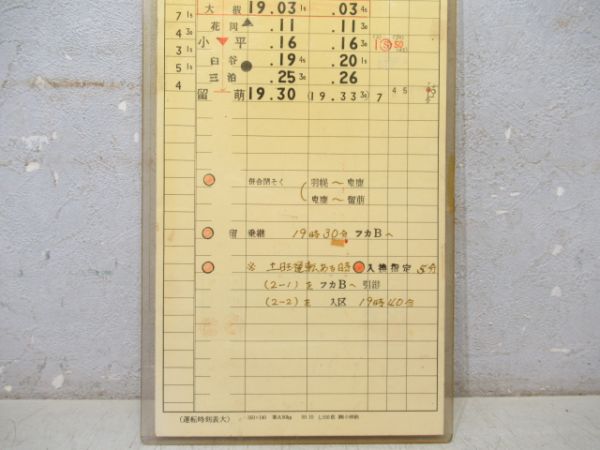 大椴 19.03 1s .03 4s
7 1s
花岡 .11 .11 3s
4 3s
小平 .16 .16 3s 1 S 50
3 1s
臼谷 .19 4s .20 1s
5 1s
三泊 .25 3s .26
4
留萌 19.30 (19.33 3s) 7 4 5
併合閉そく 羽幌〜鬼鹿
鬼鹿〜留萌
留 乗継 19時30分 フカBへ
※ 運転ある時 入換指定 5分
(2-1)を フカBへ 引渡
(2-2)を 入区 19時40分
(運転時刻表大)